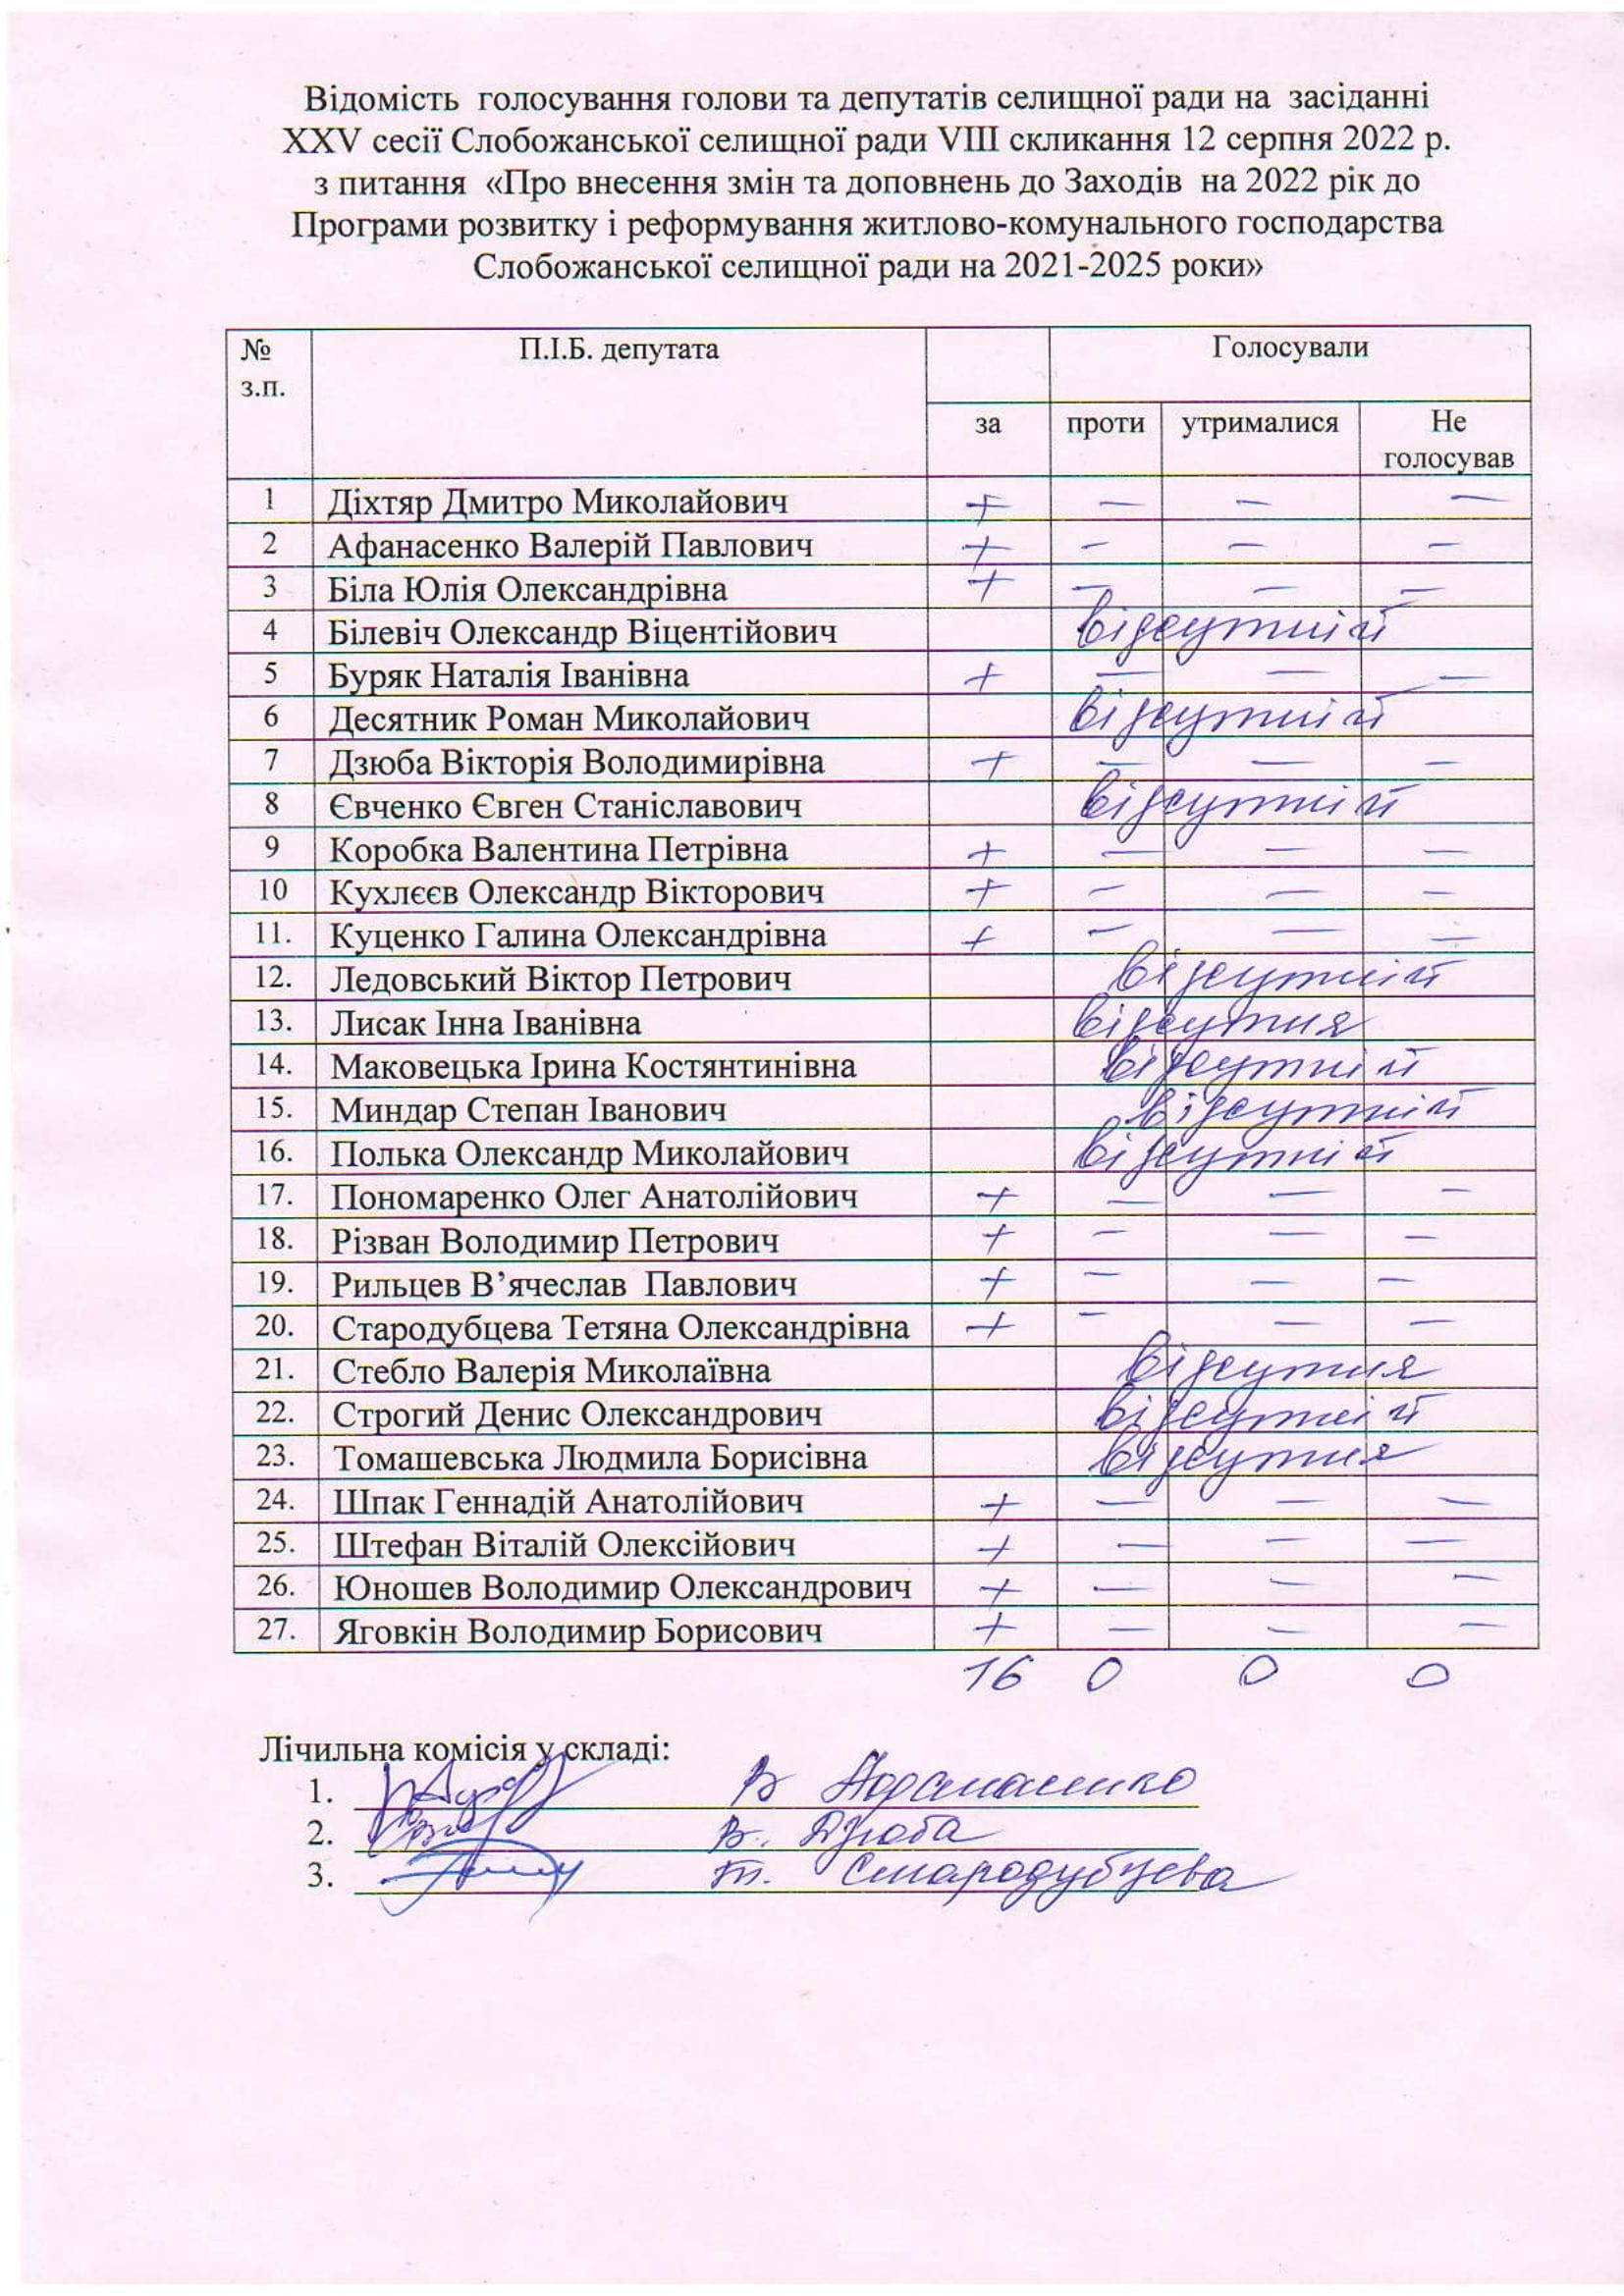 Відомість голосування голови та депутатів селищної ради на засіданні
XXV сесії Слобожанської селищної ради VIII скликання 12 серпня 2022 р.
з питання «Про внесення змін та доповнень до Заходів на 2022 рік до
Програми розвитку і реформування житлово-комунального господарства
Слобожанської селищної ради на 2021-2025 роки»
№ з.п. П.І.Б. депутата Голосували
за проти утрималися Не голосував
1 Діхтяр Дмитро Миколайович + — — —
2 Афанасенко Валерій Павлович + — — —
3 Біла Юлія Олександрівна + — — —
4 Білевіч Олександр Віцентійович відсутній
5 Буряк Наталія Іванівна + — — —
6 Десятник Роман Миколайович відсутній
7 Дзюба Вікторія Володимирівна + — — —
8 Євченко Євген Станіславович відсутній
9 Коробка Валентина Петрівна + — — —
10 Кухлєєв Олександр Вікторович + — — —
11. Куценко Галина Олександрівна + — — —
12. Ледовський Віктор Петрович відсутній
13. Лисак Інна Іванівна відсутня
14. Маковецька Ірина Костянтинівна відсутній
15. Миндар Степан Іванович відсутній
16. Полька Олександр Миколайович відсутній
17. Пономаренко Олег Анатолійович + — — —
18. Різван Володимир Петрович + — — —
19. Рильцев В’ячеслав Павлович + — — —
20. Стародубцева Тетяна Олександрівна + — — —
21. Стебло Валерія Миколаївна відсутня
22. Строгий Денис Олександрович відсутній
23. Томашевська Людмила Борисівна відсутня
24. Шпак Геннадій Анатолійович + — — —
25. Штефан Віталій Олексійович + — — —
26. Юношев Володимир Олександрович + — — —
27. Яговкін Володимир Борисович + — — —
16 0 0 0
Лічильна комісія у складі:
1. В
2. В. Дзюба
3. Т. Стародубцева